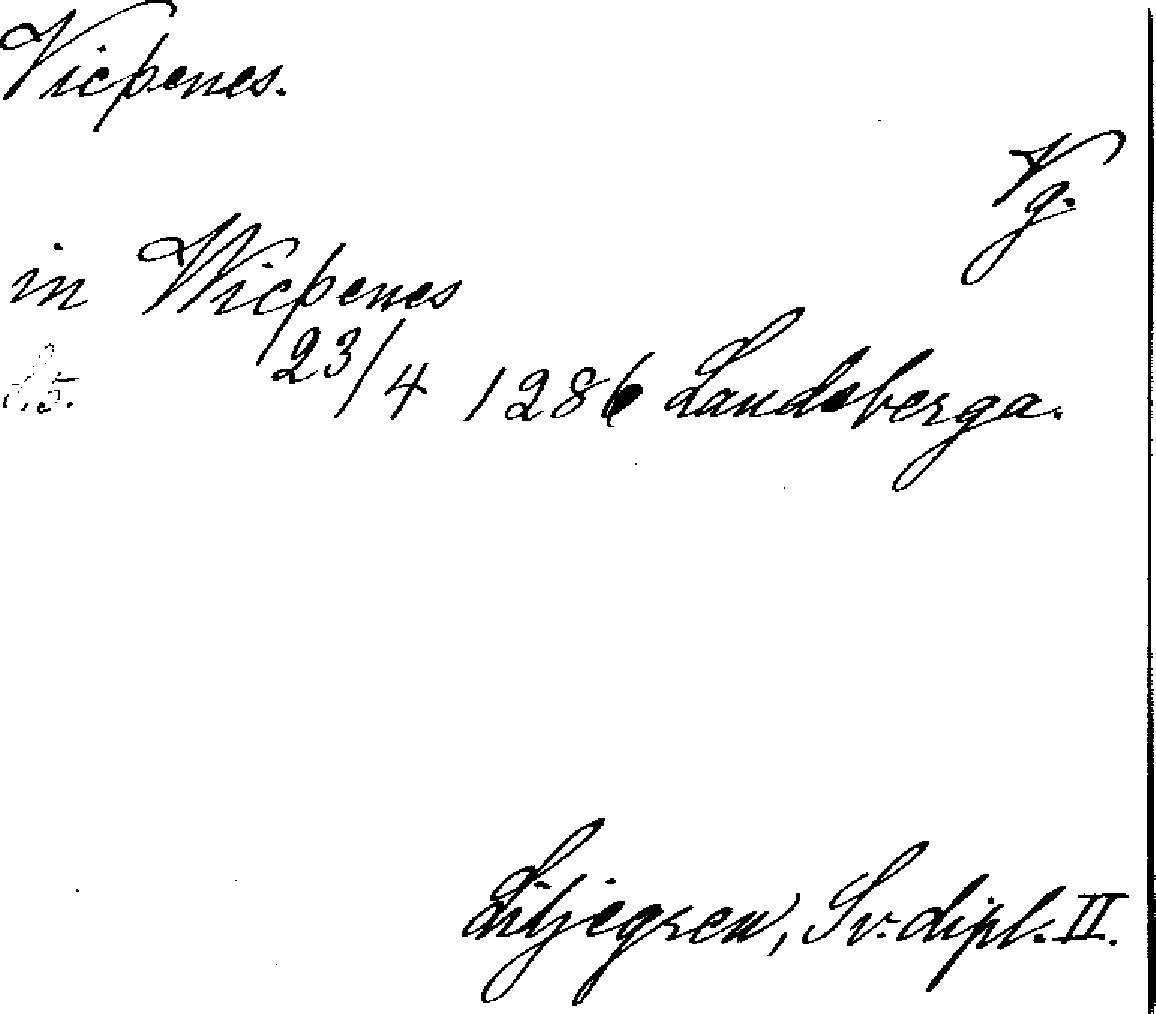 Vicþenes.
Vg.
in Wicþenes
23/4 1286 Landsberga.
Liljegren, Sv. dipl. II.